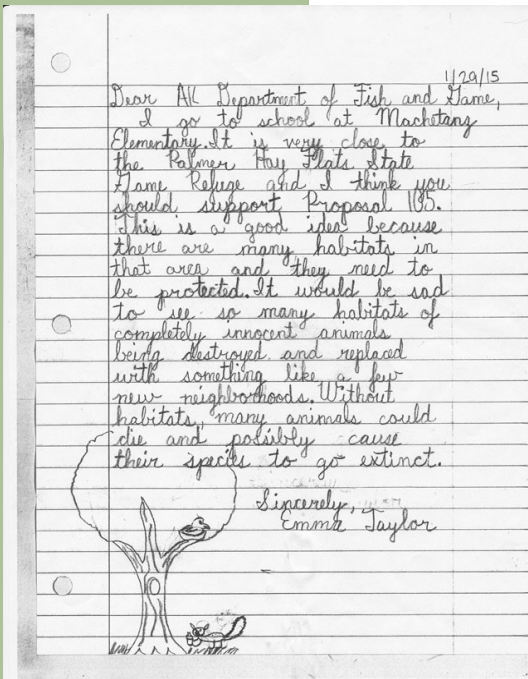 1/29/15
Dear AK Department of Fish and Game,
I go to school at Machetanz
Elementary. It is very close to
the Palmer Hay Flats State
Game Refuge and I think you
should support Proposal 165.
This is a good idea because
there are many habitats in
that area and they need to
be protected. It would be sad
to see so many habitats of
completely innocent animals
being destroyed and replaced
with something like a few
new neighborhoods. Without
habitats, many animals could
die and possibly cause
their species to go extinct.
Sincerely,
Emma Taylor